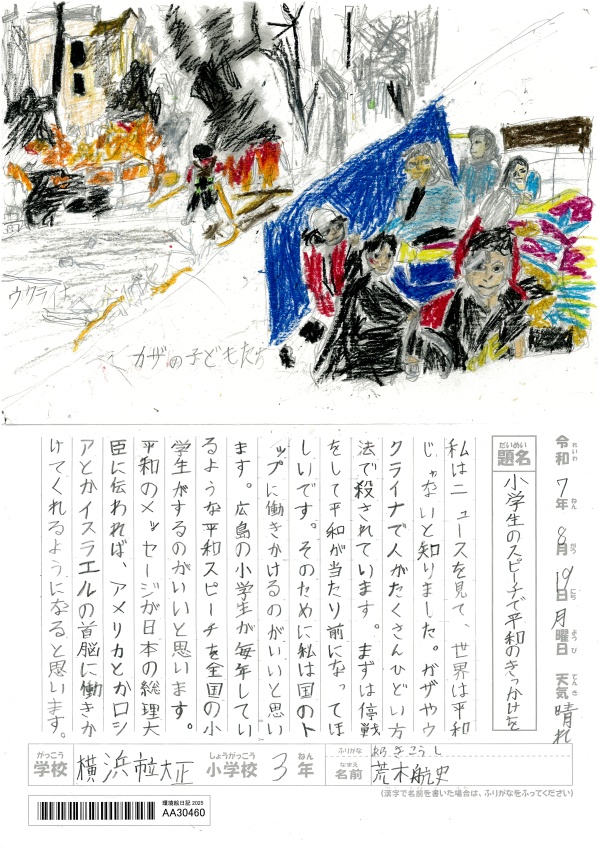 ウクライナ
ガザの子どもたち
令和7年8月19日月曜日 天気 晴れ
れいわ ねん がつ にち ようび てんき
だいめい
題名 小学生のスピーチで平和のきっかけを
私はニュースを見て、世界は平和
じゃないと知りました。ガザやウ
クライナで人がたくさんひどい方
法で殺されています。まずは停戦
をして平和が当たり前になってほ
しいです。そのために私は国のト
ップに働きかけるのがいいと思い
ます。広島の小学生が毎年してい
るような平和スピーチを全国の小
学生がするのがいいと思います。
平和のメッセージが日本の総理大
臣に伝われば、アメリカとかロシ
アとかイスラエルの首脳に働きか
けてくれるようになると思います。
がっこう しょうがっこう ねん ふりがな
学校 横浜市立大正 小学校 3年
なまえ
名前 荒木航史
(漢字で名前を書いた場合は、ふりがなをふってください)
環境絵日記 2025
AA30460